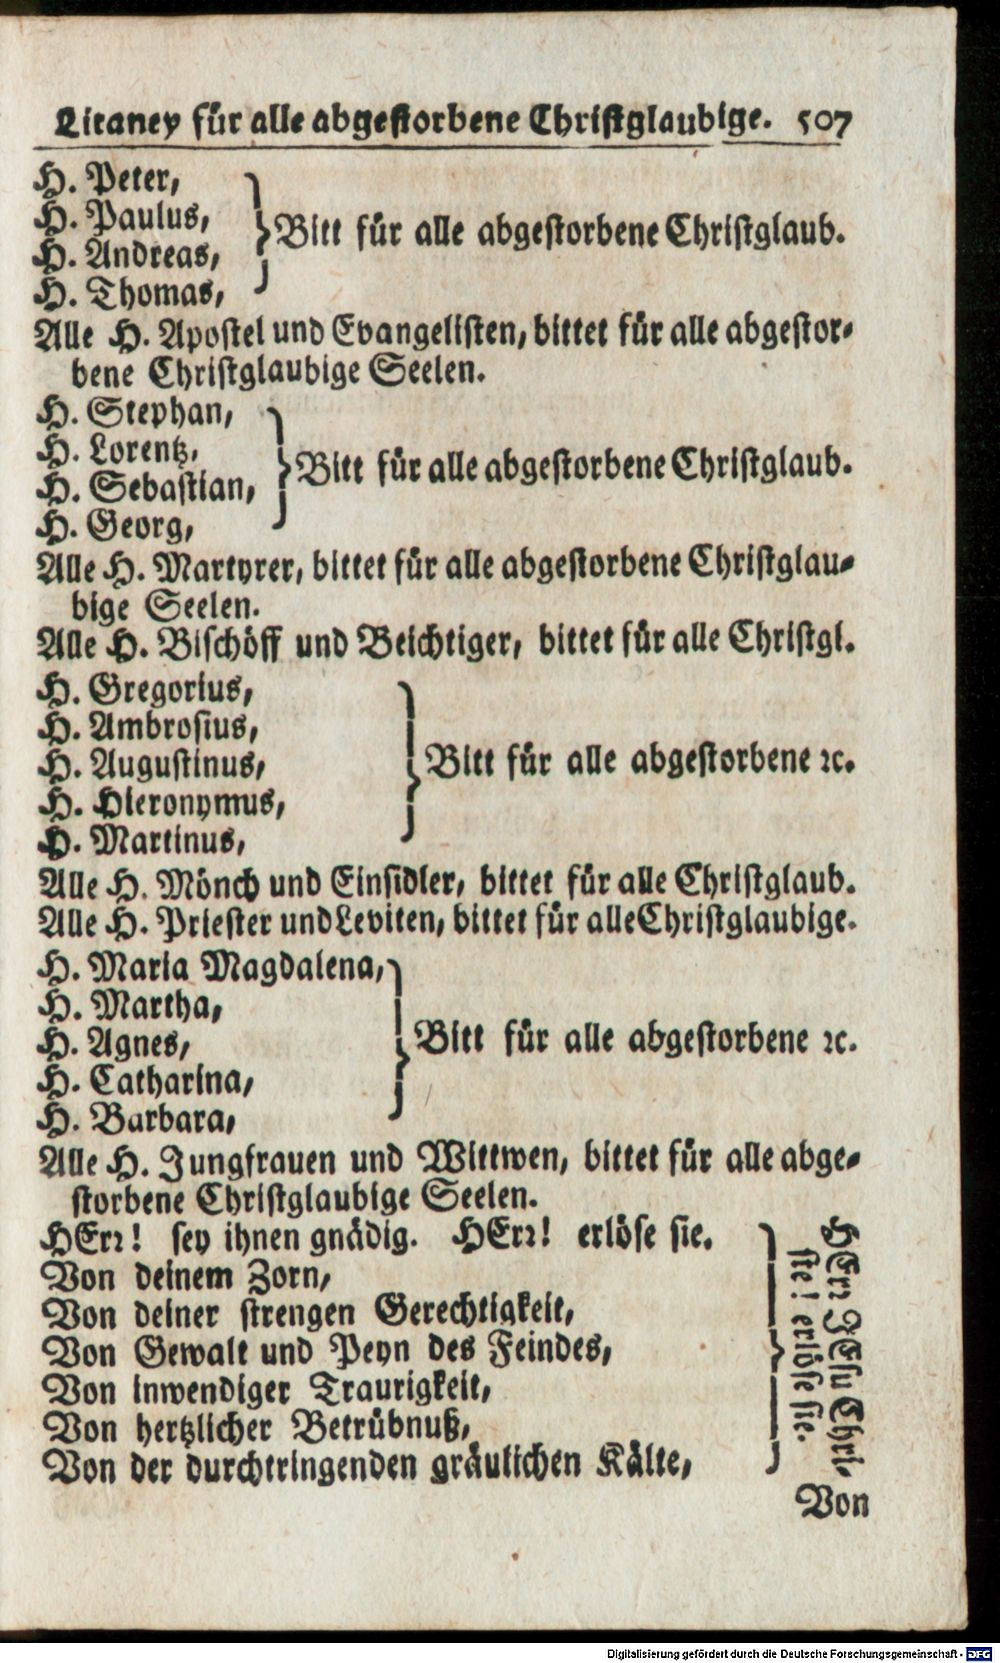 Litaney für alle abgestorbene Christglaubige. 507
H. Peter,
H. Paulus,
H. Andreas,
H. Thomas,
Bitt für alle abgestorbene Christglaub.
Alle H. Apostel und Evangelisten, bittet für alle abgestor-
bene Christglaubige Seelen.
H. Stephan,
H. Lorentz,
H. Sebastian,
H. Georg,
Bitt für alle abgestorbene Christglaub.
Alle H. Martyrer, bittet für alle abgestorbene Christglau-
bige Seelen.
Alle H. Bischöff und Beichtiger, bittet für alle Christgl.
H. Gregorius,
H. Ambrosius,
H. Augustinus,
H. Hieronymus,
H. Martinus,
Bitt für alle abgestorbene ꝛc.
Alle H. Mönch und Einsidler, bittet für alle Christglaub.
Alle H. Priester und Leviten, bittet für alle Christglaubige.
H. Maria Magdalena,
H. Martha,
H. Agnes,
H. Catharina,
H. Barbara,
Bitt für alle abgestorbene ꝛc.
Alle H. Jungfrauen und Wittwen, bittet für alle abge-
storbene Christglaubige Seelen.
HErr! sey ihnen gnädig. HErr! erlöse sie.
Von deinem Zorn,
Von deiner strengen Gerechtigkeit,
Von Gewalt und Peyn des Feindes,
Von inwendiger Traurigkeit,
Von hertzlicher Betrübnuß,
Von der durchtringenden gräulichen Kälte,
HErr JEsu Chri-
ste! erlöse sie.
Von
Digitalisierung gefördert durch die Deutsche Forschungsgemeinschaft - DFG